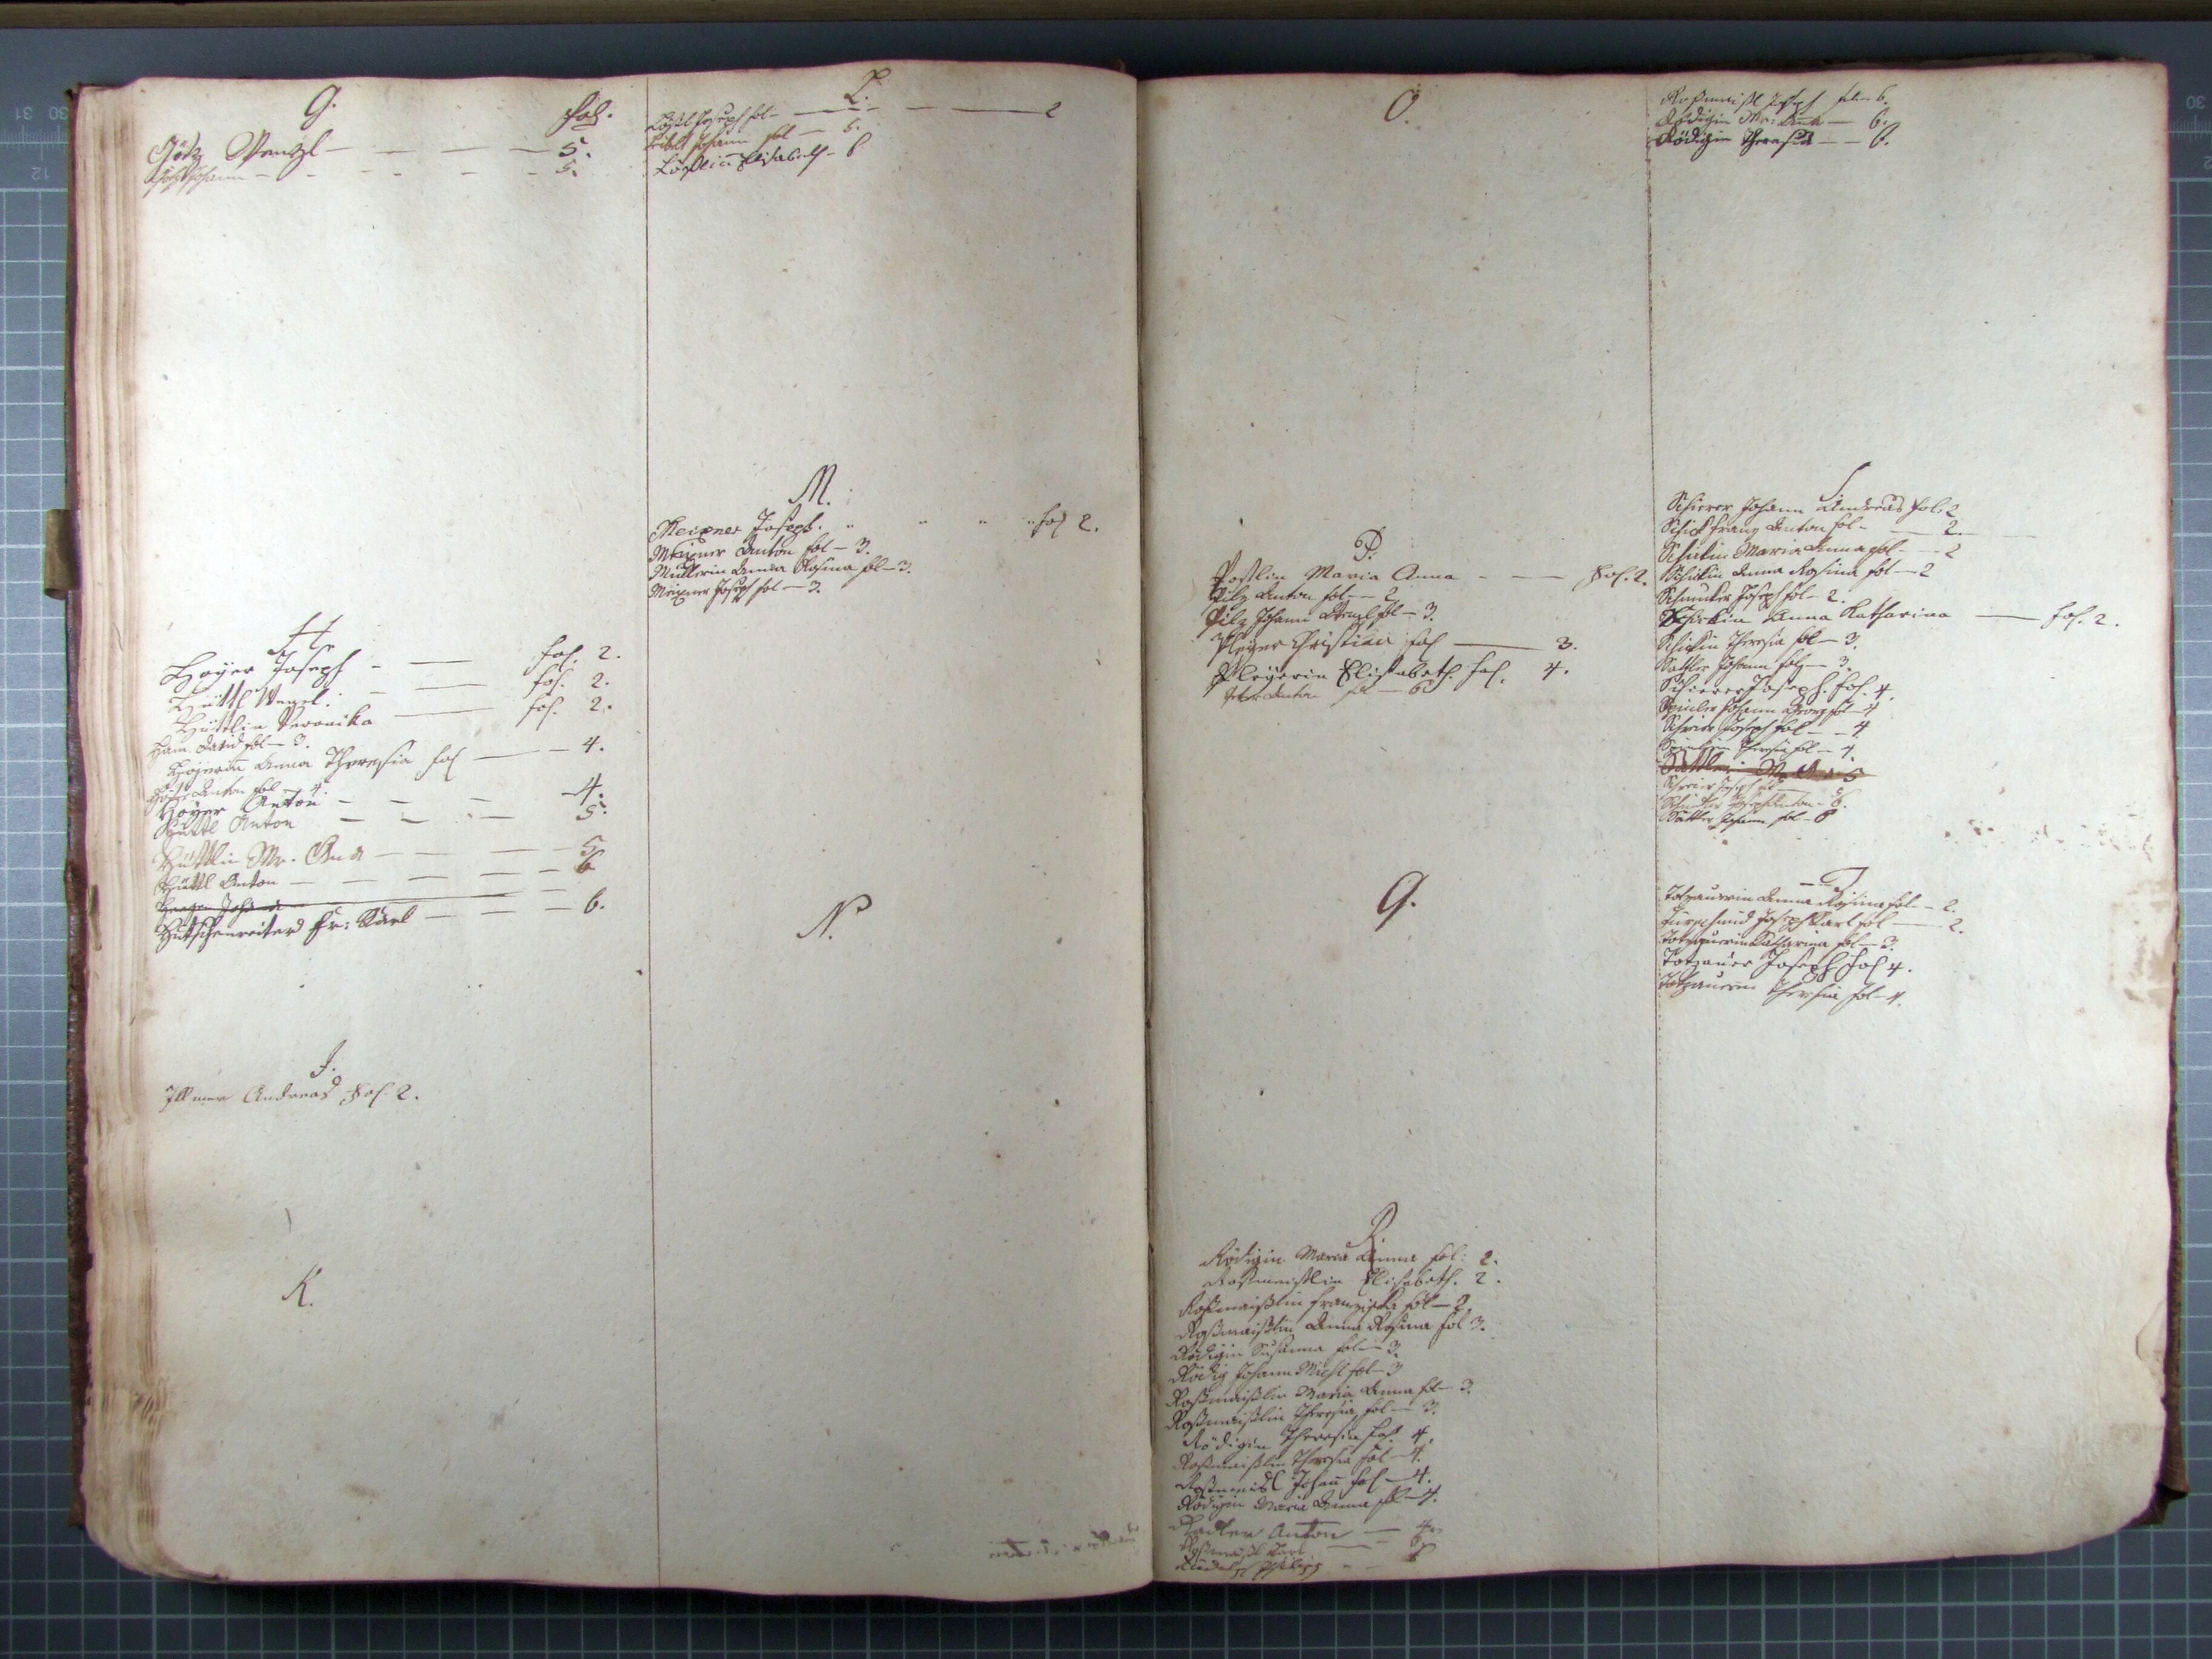 G.
fol.
Götz Wenzl — — — — 5.
Johann — — — — 5.
H
Hoÿer Joseph — fol. 2.
Hüttl Wenzl. — fol. 2.
Hüttlin Veronika — fol. 2.
Ham David fol — 3.
Hoÿerin Anna Theresia fol — 4.
Anton fol — 4.
Hoÿer Anton — — — 4.
Hüttl Anton — — — 5.
Hüttlin Mr. Ana — — — 5
Hüttl Anton — — — — 6
Johann
Hutschenreiter Fr: Karl — — — 6.
I.
Illmer Andreas Fol. 2.
K.
L.
Joseph fol — — — 2
Johann fol — 5.
Elisabeth — 6
M.
Meixner Joseph. fol 2.
Meixner Anton fol — 3.
Müllerin Anna Rosina fol — 3.
Meixner Joseph fol — 3.
N.
O.
P.
Postlin Maria Anna — — Fol. 2.
Pilz Anton fol — 2
Pilz Johann Wenzl fol — 3.
Christian fol — 3.
Pleÿerin Elisabeth. fol. 4.
Anton fol — 6
Q.
R.
Rödigin Maria Anna fol: 2.
Roßmeislin Elisabeth. 2.
Roßmeißlin Franziska fol — 2.
Roßmeißlin Anna Rosina fol 3.
Rödigin Susanna fol — 3.
Rödig Johann Michl fol — 3
Roßmeißlin Maria Anna fol — 3.
Roßmeißlin Theresia fol — 3.
Rödigin Theresia fol. 4.
Roßmeißlin Theresia fol — 4.
Roßmeisl Johan fol — 4.
Rödigin Maria Anna fol — 4.
Radler Anton — 4.
Roßmeißl Karl — 6
Philipp — 6
Roßmeißl Joseph fol — 6.
Rödigin Mr: Anna — 6.
Rödigin Theresia — — 6.
S
Schierer Johann Andreas fol. 2
Schick Franz Anton fol — 2.
Schickin Maria Anna fol — 2
Schickin Anna Rosina fol — 2
Schmucker Joseph fol — 2.
Schickin Anna Katharina — fol. 2.
Schickin Theresia fol — 3.
Sattler Johann fol — 3.
Schierer Joseph. fol. 4.
Johann Georg fol — 4
Schreier Joseph fol — 4
Theresia fol — 4.
Sattler 5
Schreier Joseph
Joseph Anton — 6.
Sattler Johann fol — 6
T
Totzauerin Anna Rosina fol — 2.
Türschmid Joseph Karl fol — 2.
Totzauerin Katharina fol — 3.
Totzauer Joseph fol 4.
Totzauerin Theresia fol — 4.